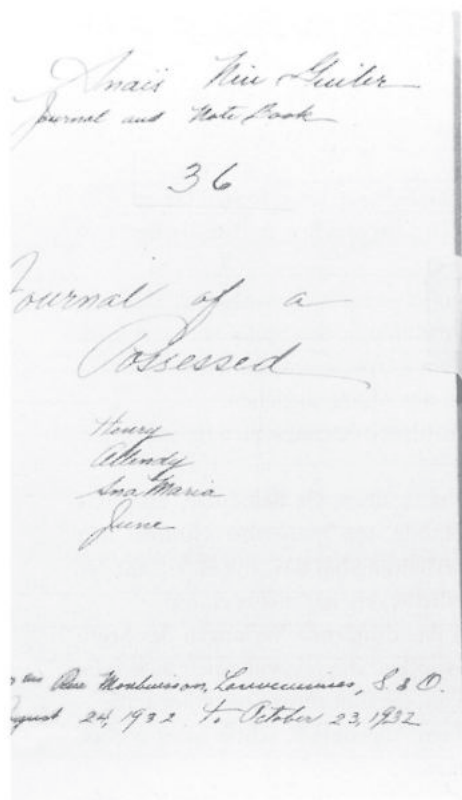 Anaïs Nin Guiler
Journal and Note Book
36
Journal of a
Possessed
Henry
Allendy
Ana Maria
June
bis Rue Monbuisson, Louveciennes, S & O.
August 24, 1932 to October 23, 1932